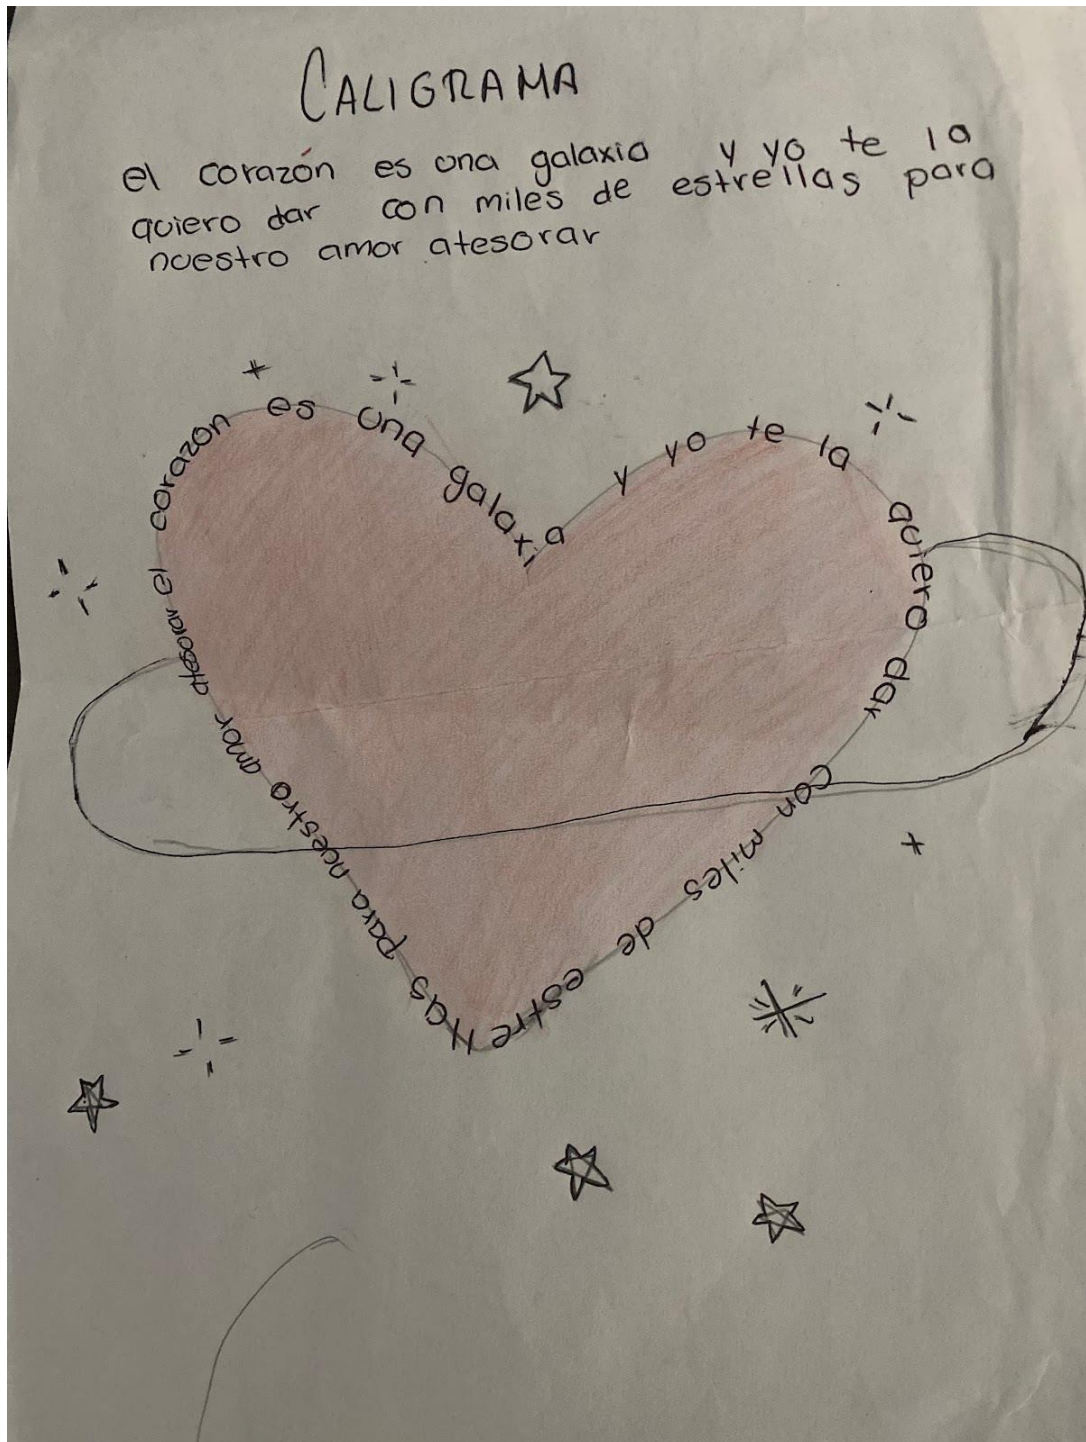 CALIGRAMA
el corazón es una galaxia y yo te la
quiero dar con miles de estrellas para
nuestro amor atesorar
el corazón es una galaxia y yo te la quiero dar con miles de estrellas para nuestro amor atesorar